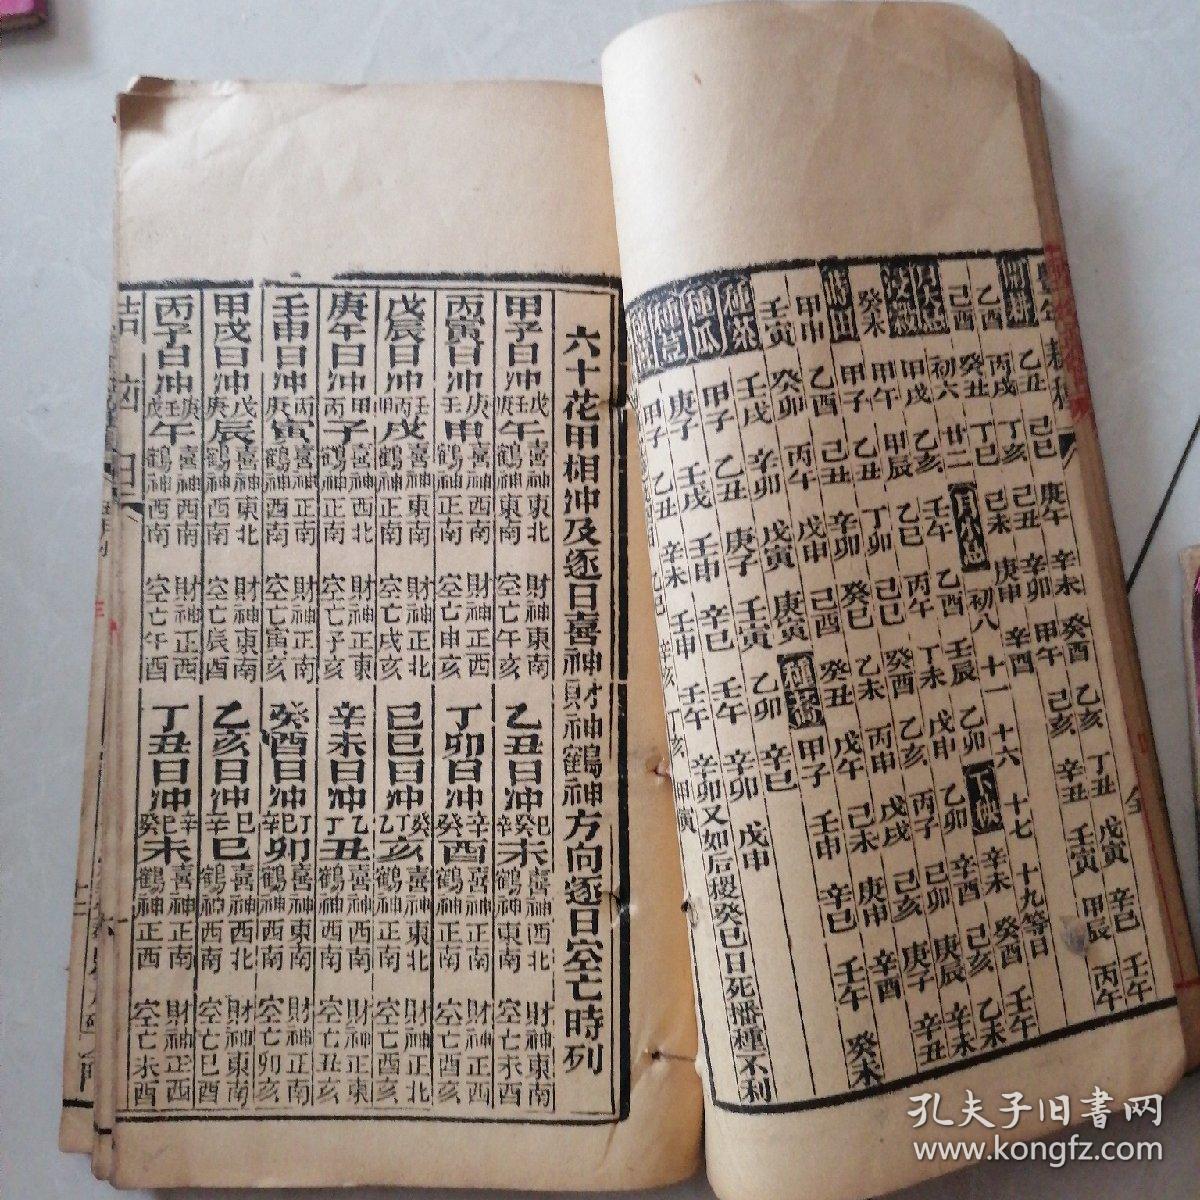 開耕 乙丑 己巳 庚午 辛未 癸酉 乙亥 丁丑 戊寅 辛巳 壬午
乙酉 丙戌 丁亥 己丑 辛卯 甲午 己亥 辛丑 壬寅 甲辰 丙午
己酉 癸丑 丁巳 己未 庚申 辛酉
初六 廿二 初八 十一 十六 十七 十九等日
浸穀 甲戌 乙亥 壬午 乙酉 壬辰 乙卯 下秧 辛未 癸酉 壬午
癸未 甲午 甲辰 乙巳 丙午 丁未 戊申 乙卯 辛酉 己亥 乙未
蒔田 甲子 乙丑 丁卯 己巳 癸酉 乙亥 丙子 己卯 庚辰 辛未
甲申 乙酉 己丑 辛卯 癸巳 乙未 丙申 戊戌 己亥 庚子 辛丑
壬寅 癸卯 丙午 戊申 己酉 癸丑 戊午 己未 庚申 辛酉
種菜 壬戌 辛卯 戊寅 庚寅 甲子 壬申 辛巳 壬午 癸未
種瓜 甲子 乙丑 庚子 壬寅 乙卯 辛巳
種荳 庚子 壬戌 壬申 辛巳 壬午 辛卯 戊申
甲子 乙丑 辛未 壬申 壬午 辛卯又如后稷癸巳日死播種不利
六十花甲相冲及逐日喜神財神鶴神方向逐日空亡時列
甲子日冲戊午 喜神東北 鶴神東南 財神東南 空亡午亥 乙丑日冲己癸未 喜神西北 鶴神東南 財神東南 空亡未酉
丙寅日冲庚壬申 喜神西南 鶴神正南 財神正西 空亡申亥 丁卯日冲辛癸酉 喜神正南 鶴神正南 財神正西 空亡酉亥
戊辰日冲壬丙戌 喜神東南 鶴神正南 財神正北 空亡戌亥 己巳日冲癸乙亥 喜神東北 鶴神正南 財神正北 空亡亥酉
庚午日冲丙甲子 喜神西北 鶴神正南 財神正東 空亡子亥 辛未日冲乙丁丑 喜神西南 鶴神西南 財神正東 空亡丑亥
壬申日冲丙庚寅 喜神正南 鶴神西南 財神正南 空亡寅亥 癸酉日冲丁辛卯 喜神東南 鶴神西南 財神正南 空亡卯亥
甲戌日冲戊庚辰 喜神東北 鶴神西南 財神東南 空亡辰酉 乙亥日冲己辛巳 喜神西北 鶴神西南 財神東南 空亡巳酉
丙子日冲庚戊午 喜神西南 鶴神西南 財神正西 空亡午酉 丁丑日冲己癸未 喜神正南 鶴神正西 財神正西 空亡未酉
孔夫子旧書网
www.kongfz.com